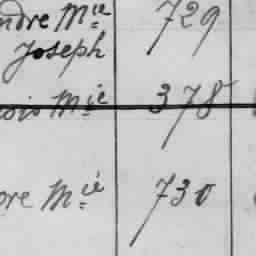 ndre Mie 729
Joseph
ois Mie 378
ore Mie 730